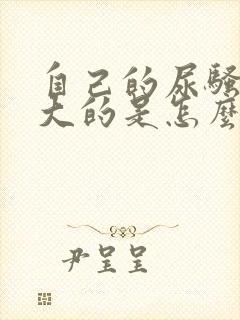 自己的尿骚
大的是怎麼
尹呈呈